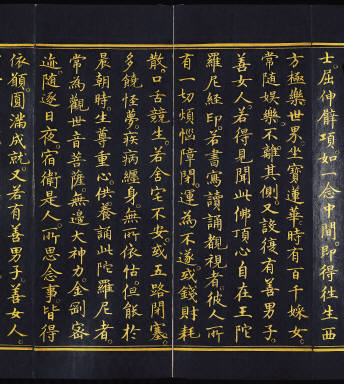 士屈伸臂項如一念中間即得往生西
方極樂世界坐寶蓮華時有百千婇女
常隨娛樂不離其側又設復有善男子
善女人若得見聞此佛頂心自在王陀
羅尼經印若書寫讀誦觀視者彼人所
有一切煩惱障閇運為不遂或錢財耗
散口舌競生若舍宅不安或五路閇塞
多饒怪夢疾病纏身無所依怙但能於
晨朝時生尊重心供養誦此陀羅尼者
常為觀世音菩薩無邊大神力金剛密
迹隨逐日夜宿衛是人所思念事皆得
依願圓滿成就又若有善男子善女人